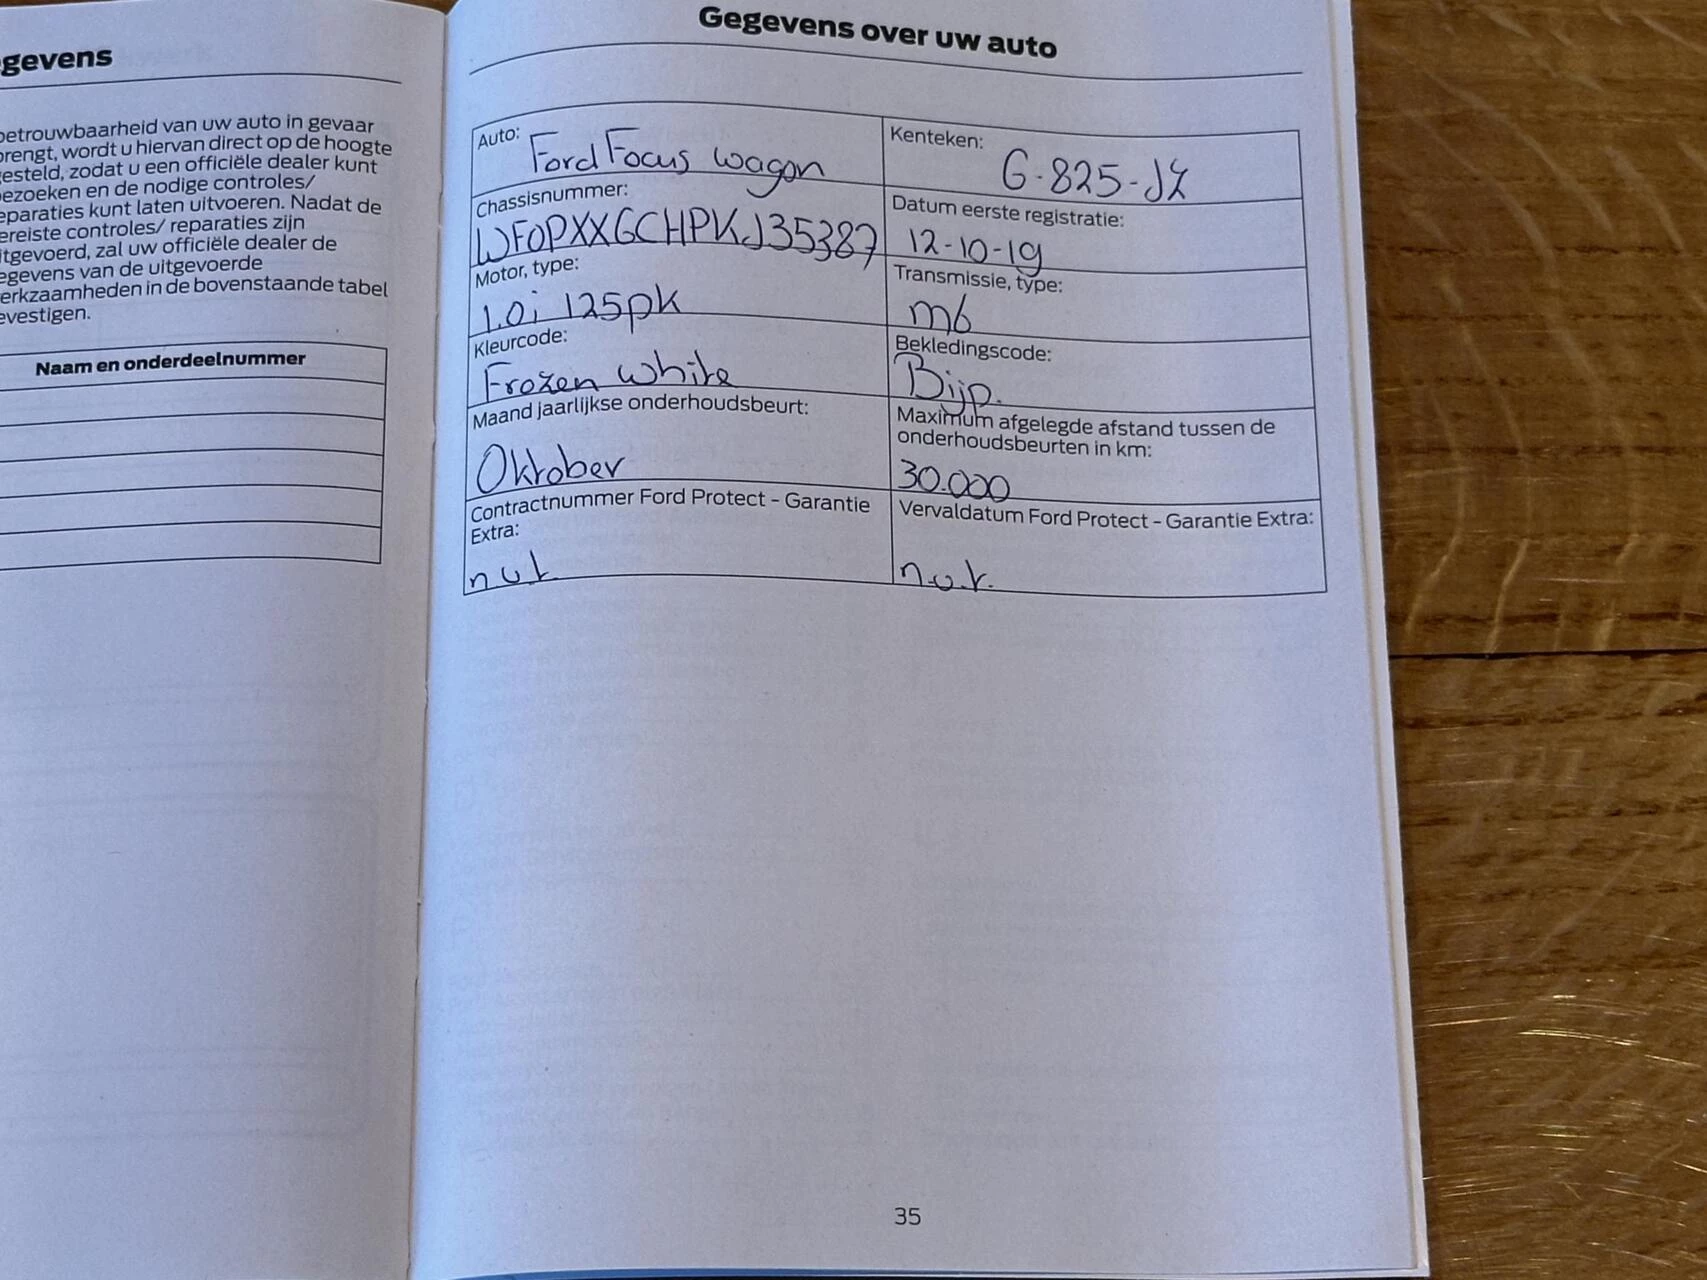 gegevens
betrouwbaarheid van uw auto in gevaar
brengt, wordt u hiervan direct op de hoogte
gesteld, zodat u een officiële dealer kunt
bezoeken en de nodige controles/
reparaties kunt laten uitvoeren. Nadat de
vereiste controles/ reparaties zijn
uitgevoerd, zal uw officiële dealer de
gegevens van de uitgevoerde
werkzaamheden in de bovenstaande tabel
bevestigen.
Naam en onderdeelnummer
Gegevens over uw auto
Auto:
Ford Focus wagon
Kenteken:
G-825-JZ
Chassisnummer:
WF0PXXGCHPKJ35387
Datum eerste registratie:
12-10-19
Motor, type:
1.0i 125pk
Transmissie, type:
m6
Kleurcode:
Frozen white
Bekledingscode:
Bijp.
Maand jaarlijkse onderhoudsbeurt:
Oktober
Maximum afgelegde afstand tussen de
onderhoudsbeurten in km:
30.000
Contractnummer Ford Protect - Garantie
Extra:
n.v.t.
Vervaldatum Ford Protect - Garantie Extra:
n.v.t.
35